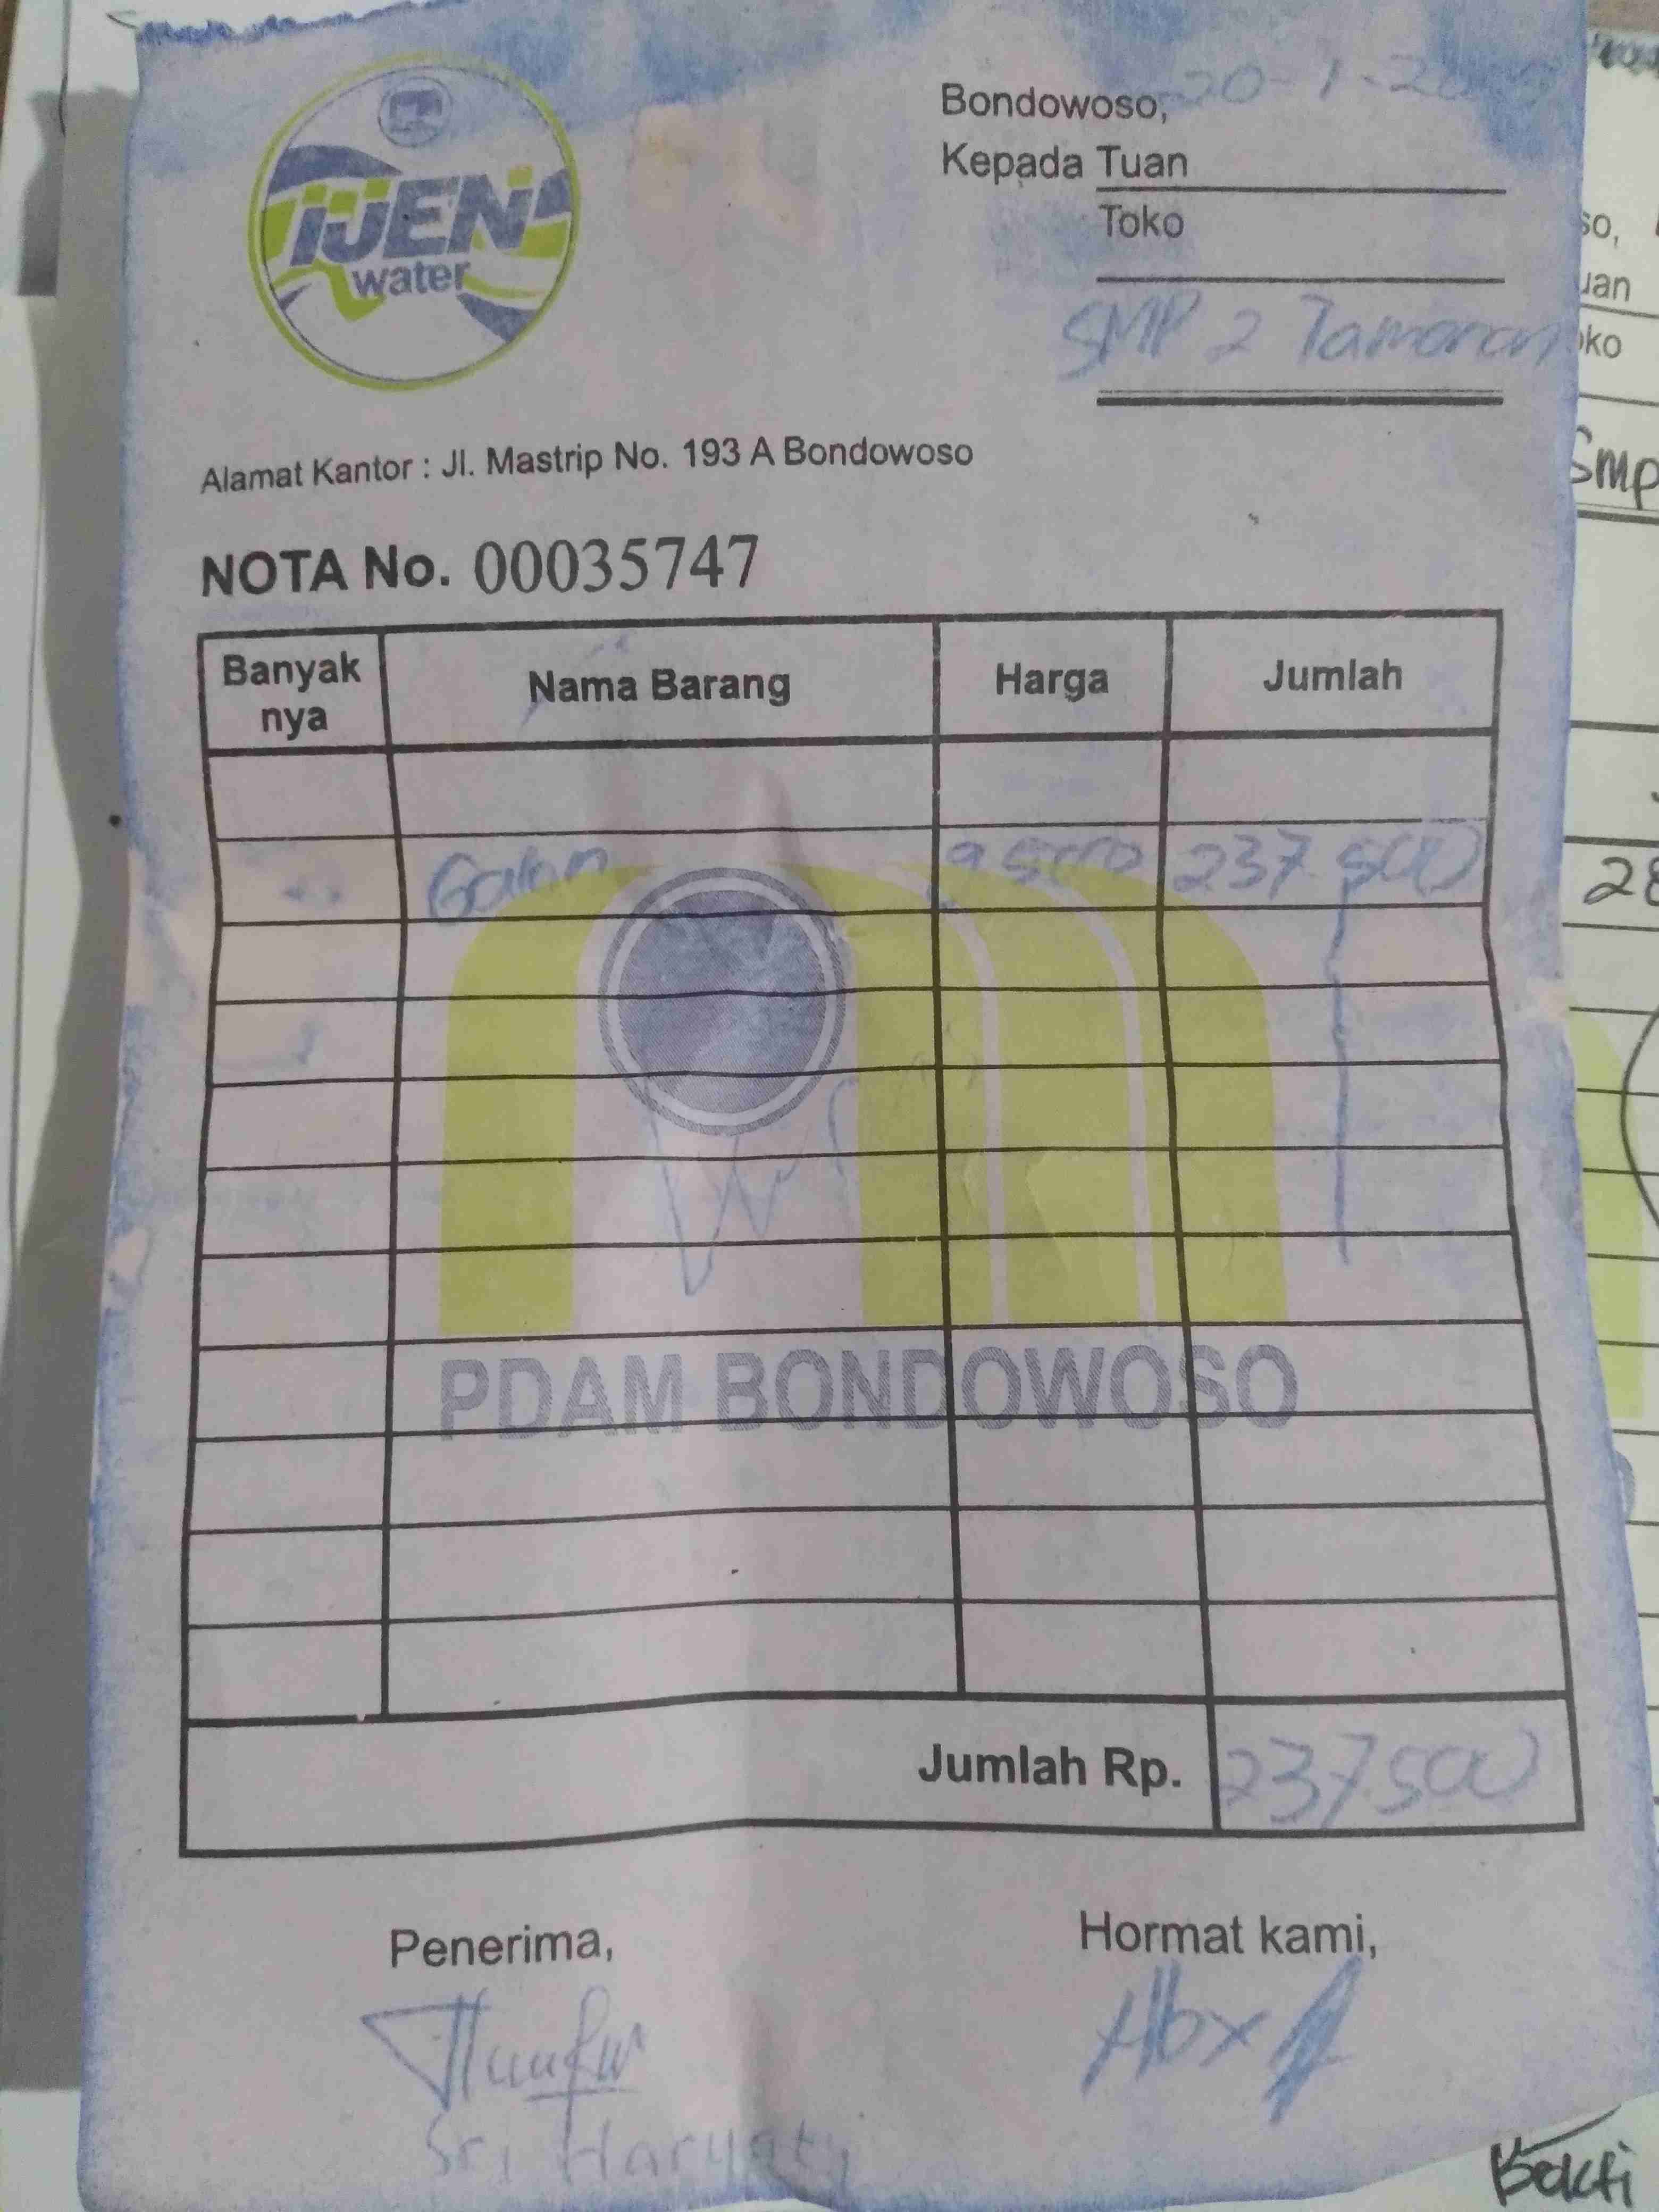 IJEN
water
Bondowoso, 20-1-20
Kepada Tuan
Toko
SMP 2 Tamanan
Alamat Kantor : Jl. Mastrip No. 193 A Bondowoso
NOTA No. 00035747
Banyak nya Nama Barang Harga Jumlah
Galon 9500 237.500
PDAM BONDOWOSO
Jumlah Rp. 237.500
Penerima, Hormat kami,
Sri Haryati
so,
uan
oko
Smp
28
Bakti